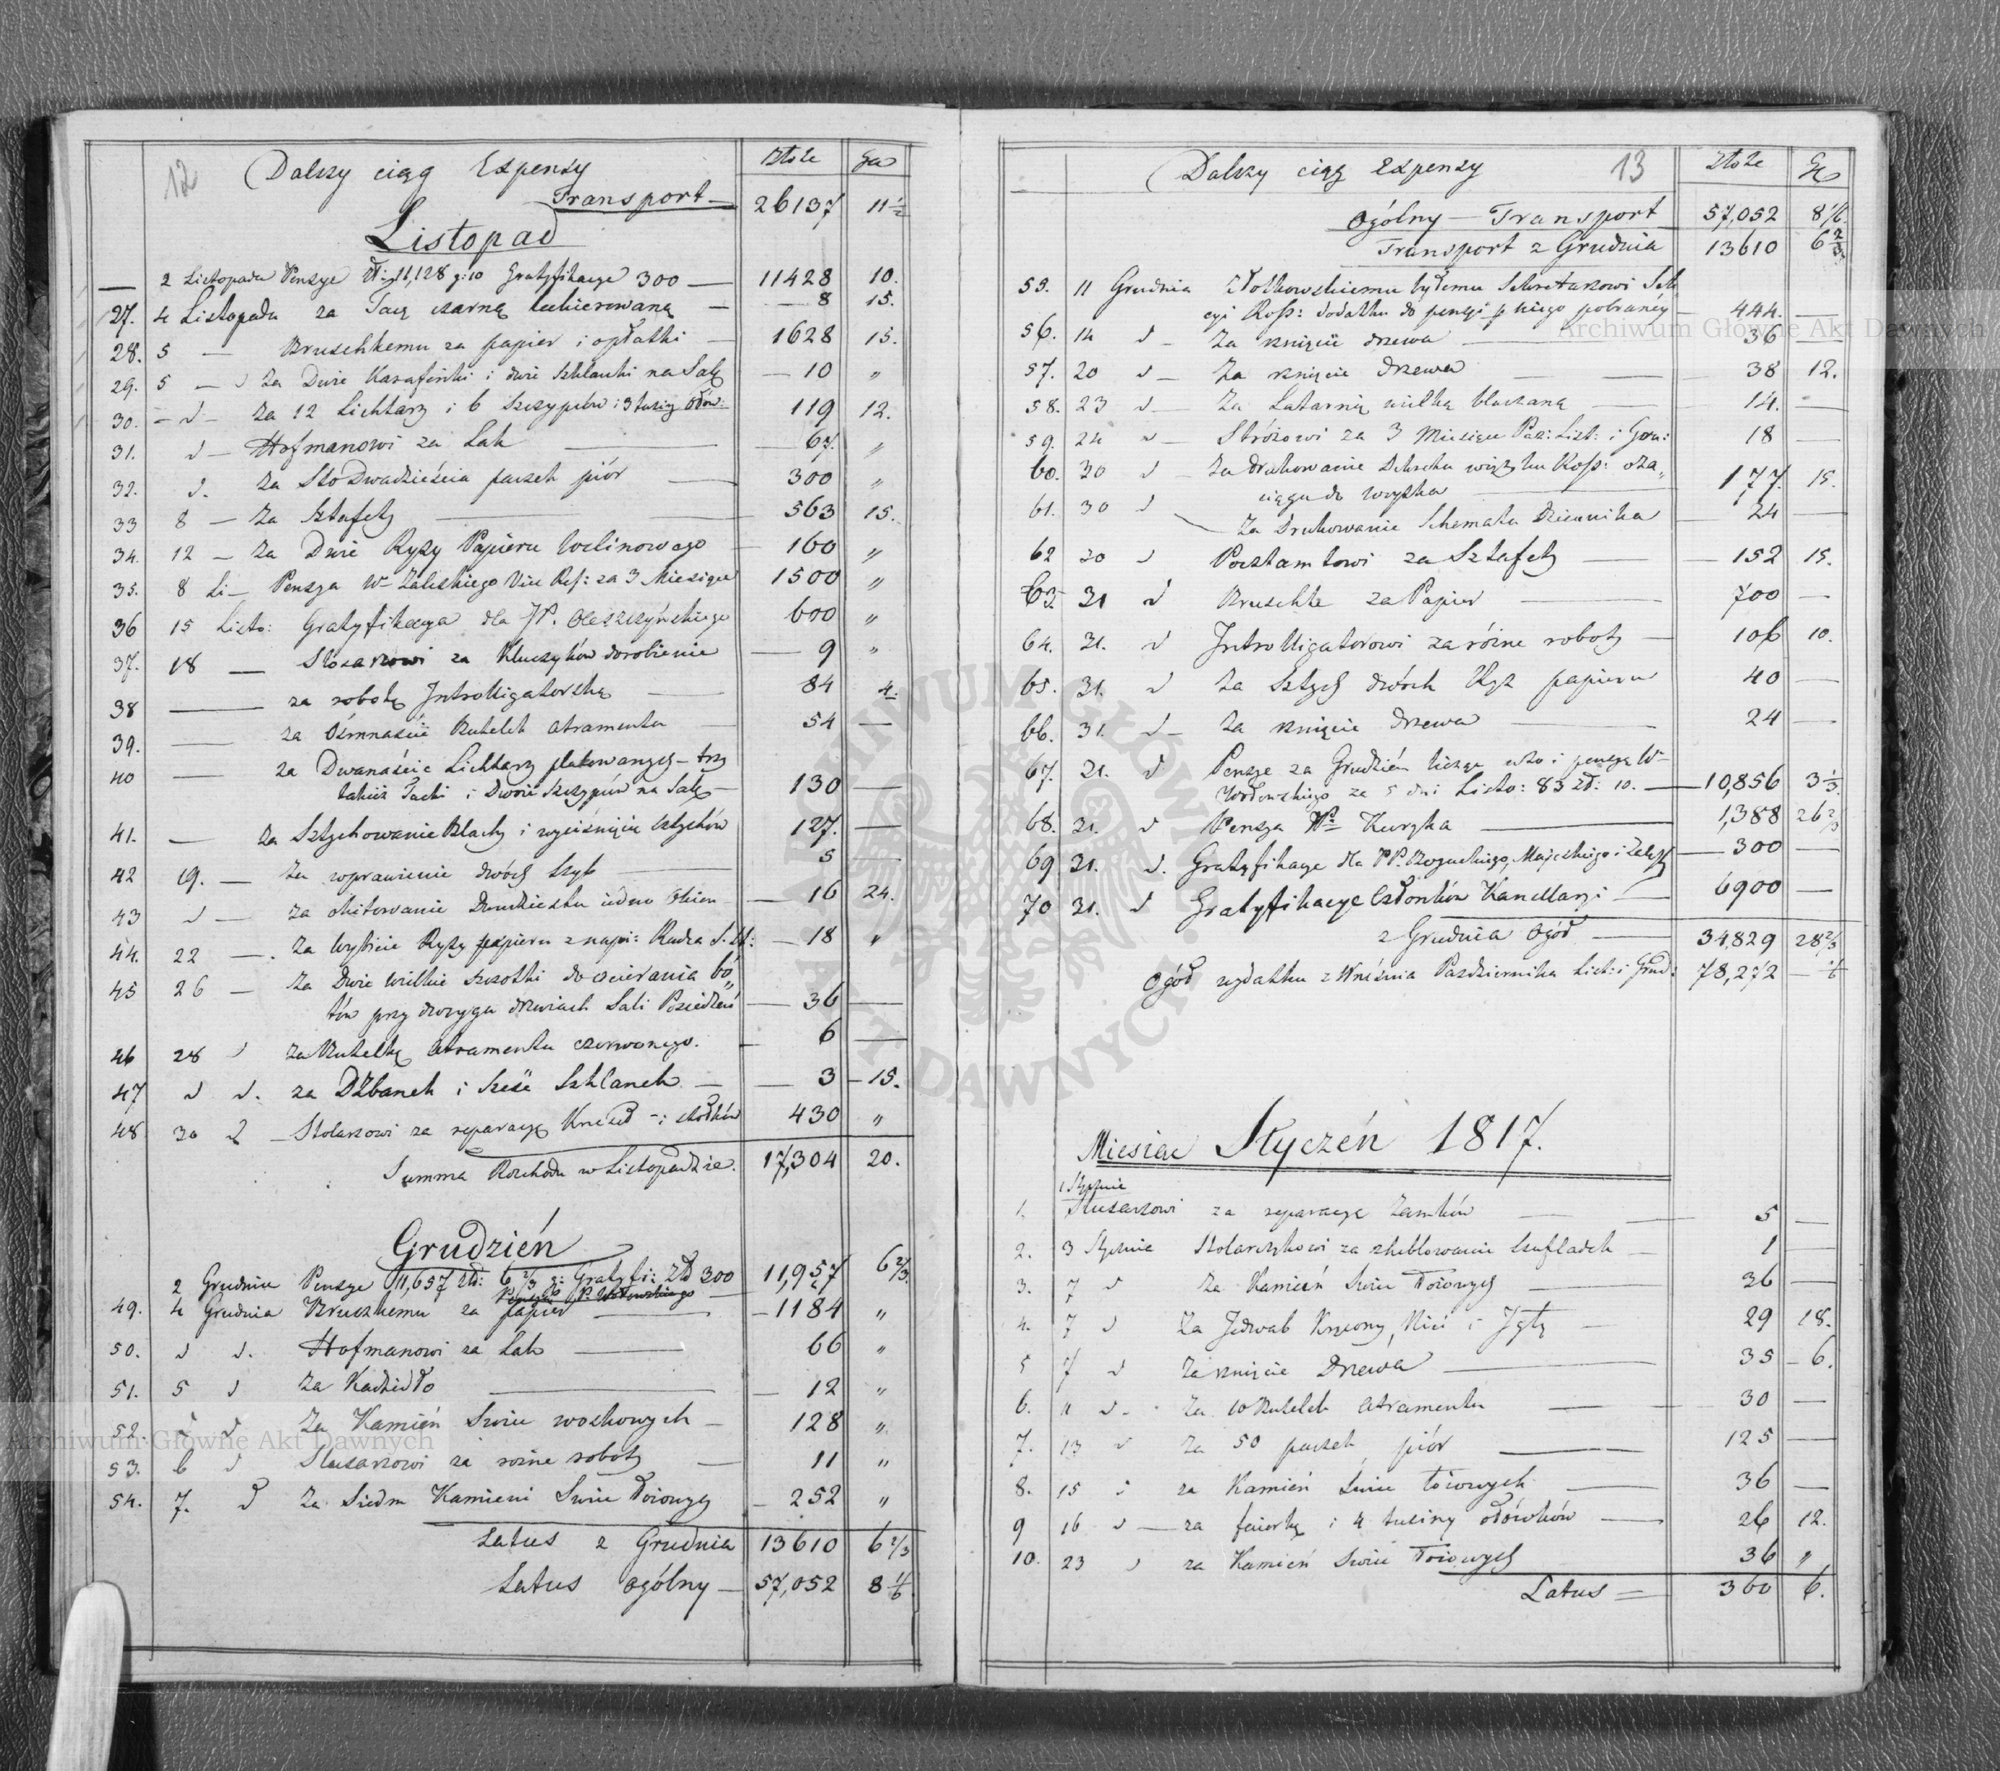 12 Dalszy ciąg Expensy Złote Gr
Transport 26137 11 1/2
Listopad
2 Listopada Pensye Zł: 11,128 g: 10 Gratyfikacye 300 — 11428 10.
27. 4 Listopada za Tacę czarną lakierowaną — 8 15.
28. 5 — Bruschkemu za papier i opłatki — 1628 15.
29. 5 — d Za Dwie Karafinki i dwie szklanki na Salę — 10 "
30. — d — Za 12 Lichtarzy i 6 Szczypców i 3 tuziny Ołów: 119 12.
31. d — Hofmanowi za Lak — 67. "
32. d. Za Sto Dwadzieścia paczek piór — 300 "
33 8 — Za Sztafety — 563 15.
34. 12 — Za Dwie Ryzy Papieru Welinowego — 160 "
35. 8 Li— Pensya W— Zaleskiego Vice Ref: za 3 Miesiące 1500 "
36 15 Listo: Gratyfikacya dla JP. Oleszczyńskiego 600 "
37. 18 — Slósarzowi za Kluczyków dorobienie — 9 "
38 — za robotę Introlligatorską — 84 4.
39. — za Ośmnaście Butelek atramentu — 54 —
40 — za Dwanaście Lichtarzy platerowanych — trzy
takież Tacki i Dwoie Szczypców na Salę — 130 —
41. — Za Sztychowanie Blachy i wyciśnięcie Sztychów 127. —
42 19. — Za wprawienie dwóch szyb — 5 —
43 d — Za okitowanie Dwudziestu iedno Okien — 16 24.
44. 22 — . Za Wybicie Ryzy papieru z napi: Rada S. St: — 18 "
45 26 — Za Dwie wielkie szczotki do ocierania bó„
tów przy dwoyga drzwiach Sali Posiedzeń — 36 —
46 28 d Za Butelkę Atramentu czerwonego. — 6 —
47 d d. za Dzbanek i Sześć Szklanek — 3 — 15.
48 30 d — Stolarzowi za reparacyę Krzeseł — i stołków 430 "
Summa Rozchodu w Listopadzie. 17,304 20.
Grudzień
2 Grudnia Pensye 11,657 Zł: 6 2/3 g: Gratyfi: Zł 300 11,957 6 2/3
49. 4 Grudnia Bruszkemu za papier — 1184 "
50. d d. Hofmanowi za Lak — 66 "
51. 5 d Za Kadzidło — 12 "
52. d Za Kamień Swiec woskowych — 128 "
53. 6 d Slusarzowi za rożne roboty — 11 "
54. 7. d Za Siedm Kamieni Swiec Łoiowych — 252 "
Latus z Grudnia 13610 6 2/3
Latus ogólny — 57,052 8 1/6
Dalszy ciąg Expensy 13 Złote Gr
Ogólny — Transport 57,052 8 1/6
Transport z Grudnia 13610 6 2/3
55. 11 Grudnia Ziołkowskiemu byłemu Sekretarzowi Sek
cyi Rosp: dodatku do pensyi p niego pobraney — 444. —
56. 14 d — Za rznięcie drzewa — 36 —
57. 20 d — Za rznięcie Drzewa — 38 12.
58. 23 d — Za Latarnią wielką blaszaną — 14. —
59. 24 d — Stróżowi za 3 Miesiące Paź: List: i Gru: 18 —
60. 30 d — Za drukowanie
ciągu do 177. 15.
61. 30 d Za Drukowanie Schematu Dziennika — 24 —
62 30 d Pocztamtowi za Sztafety — 152 15.
63. 31 d Bruschke za Papier — 700 —
64. 31. d Introlligatorowi za różne roboty — 106 10.
65. 31. d Za Sztych dwóch Ryz papieru 40 —
66. 31. d — Za rznięcie Drzewa — 24 —
67. 31. d Pensye za Grudzień licząc w to i pensyą W—
Wołowskiego za 5 dni Listo: 83 Zł: 10. — 10,856 3 1/3
68. 31. d Pensya Wo Kuczyka — 1,388 26 2/3
69 31. d. Gratyfikacye dla PP. Boguckiego, Majewskiego i — 300 —
70 31. d Gratyfikacye Członków Kancellaryi — 6900 —
z Grudnia Ogół — 34,829 28 2/3
Ogół wydatku z Września Pazdziernika List: i Grud: 78,272 — 1/6
Miesiąc Styczeń 1817.
1 Stycznia
1. Slusarzowi za reparacyę Zamków — 5 —
2. 3 Stycznia Stolarczykowi za zheblowanie Szufladek — 1 —
3. 7 d Za Kamień Swiec Łoiowych — 36 —
4. 7 d Za Jedwab Kręcony, Nici i Igły — 29 18.
5 7 d Za rznięcie Drzewa — 35 — 6.
6. 11 d — Za 10 Butelek atramentu — 30 —
7. 13 d Za 50 paczek piór — 125 —
8. 15 d za Kamień Swiec łoiowych — 36 —
9 16 d — za i 4 tuziny ołówków — 26 12.
10. 23 d za Kamień Swiec Łoiowych 36 "
Latus = 360 6.
Archiwum Główne Akt Dawnych
Archiwum Główne Akt Dawnych
ARCHIWUM GŁÓWNE AKT DAWNYCH